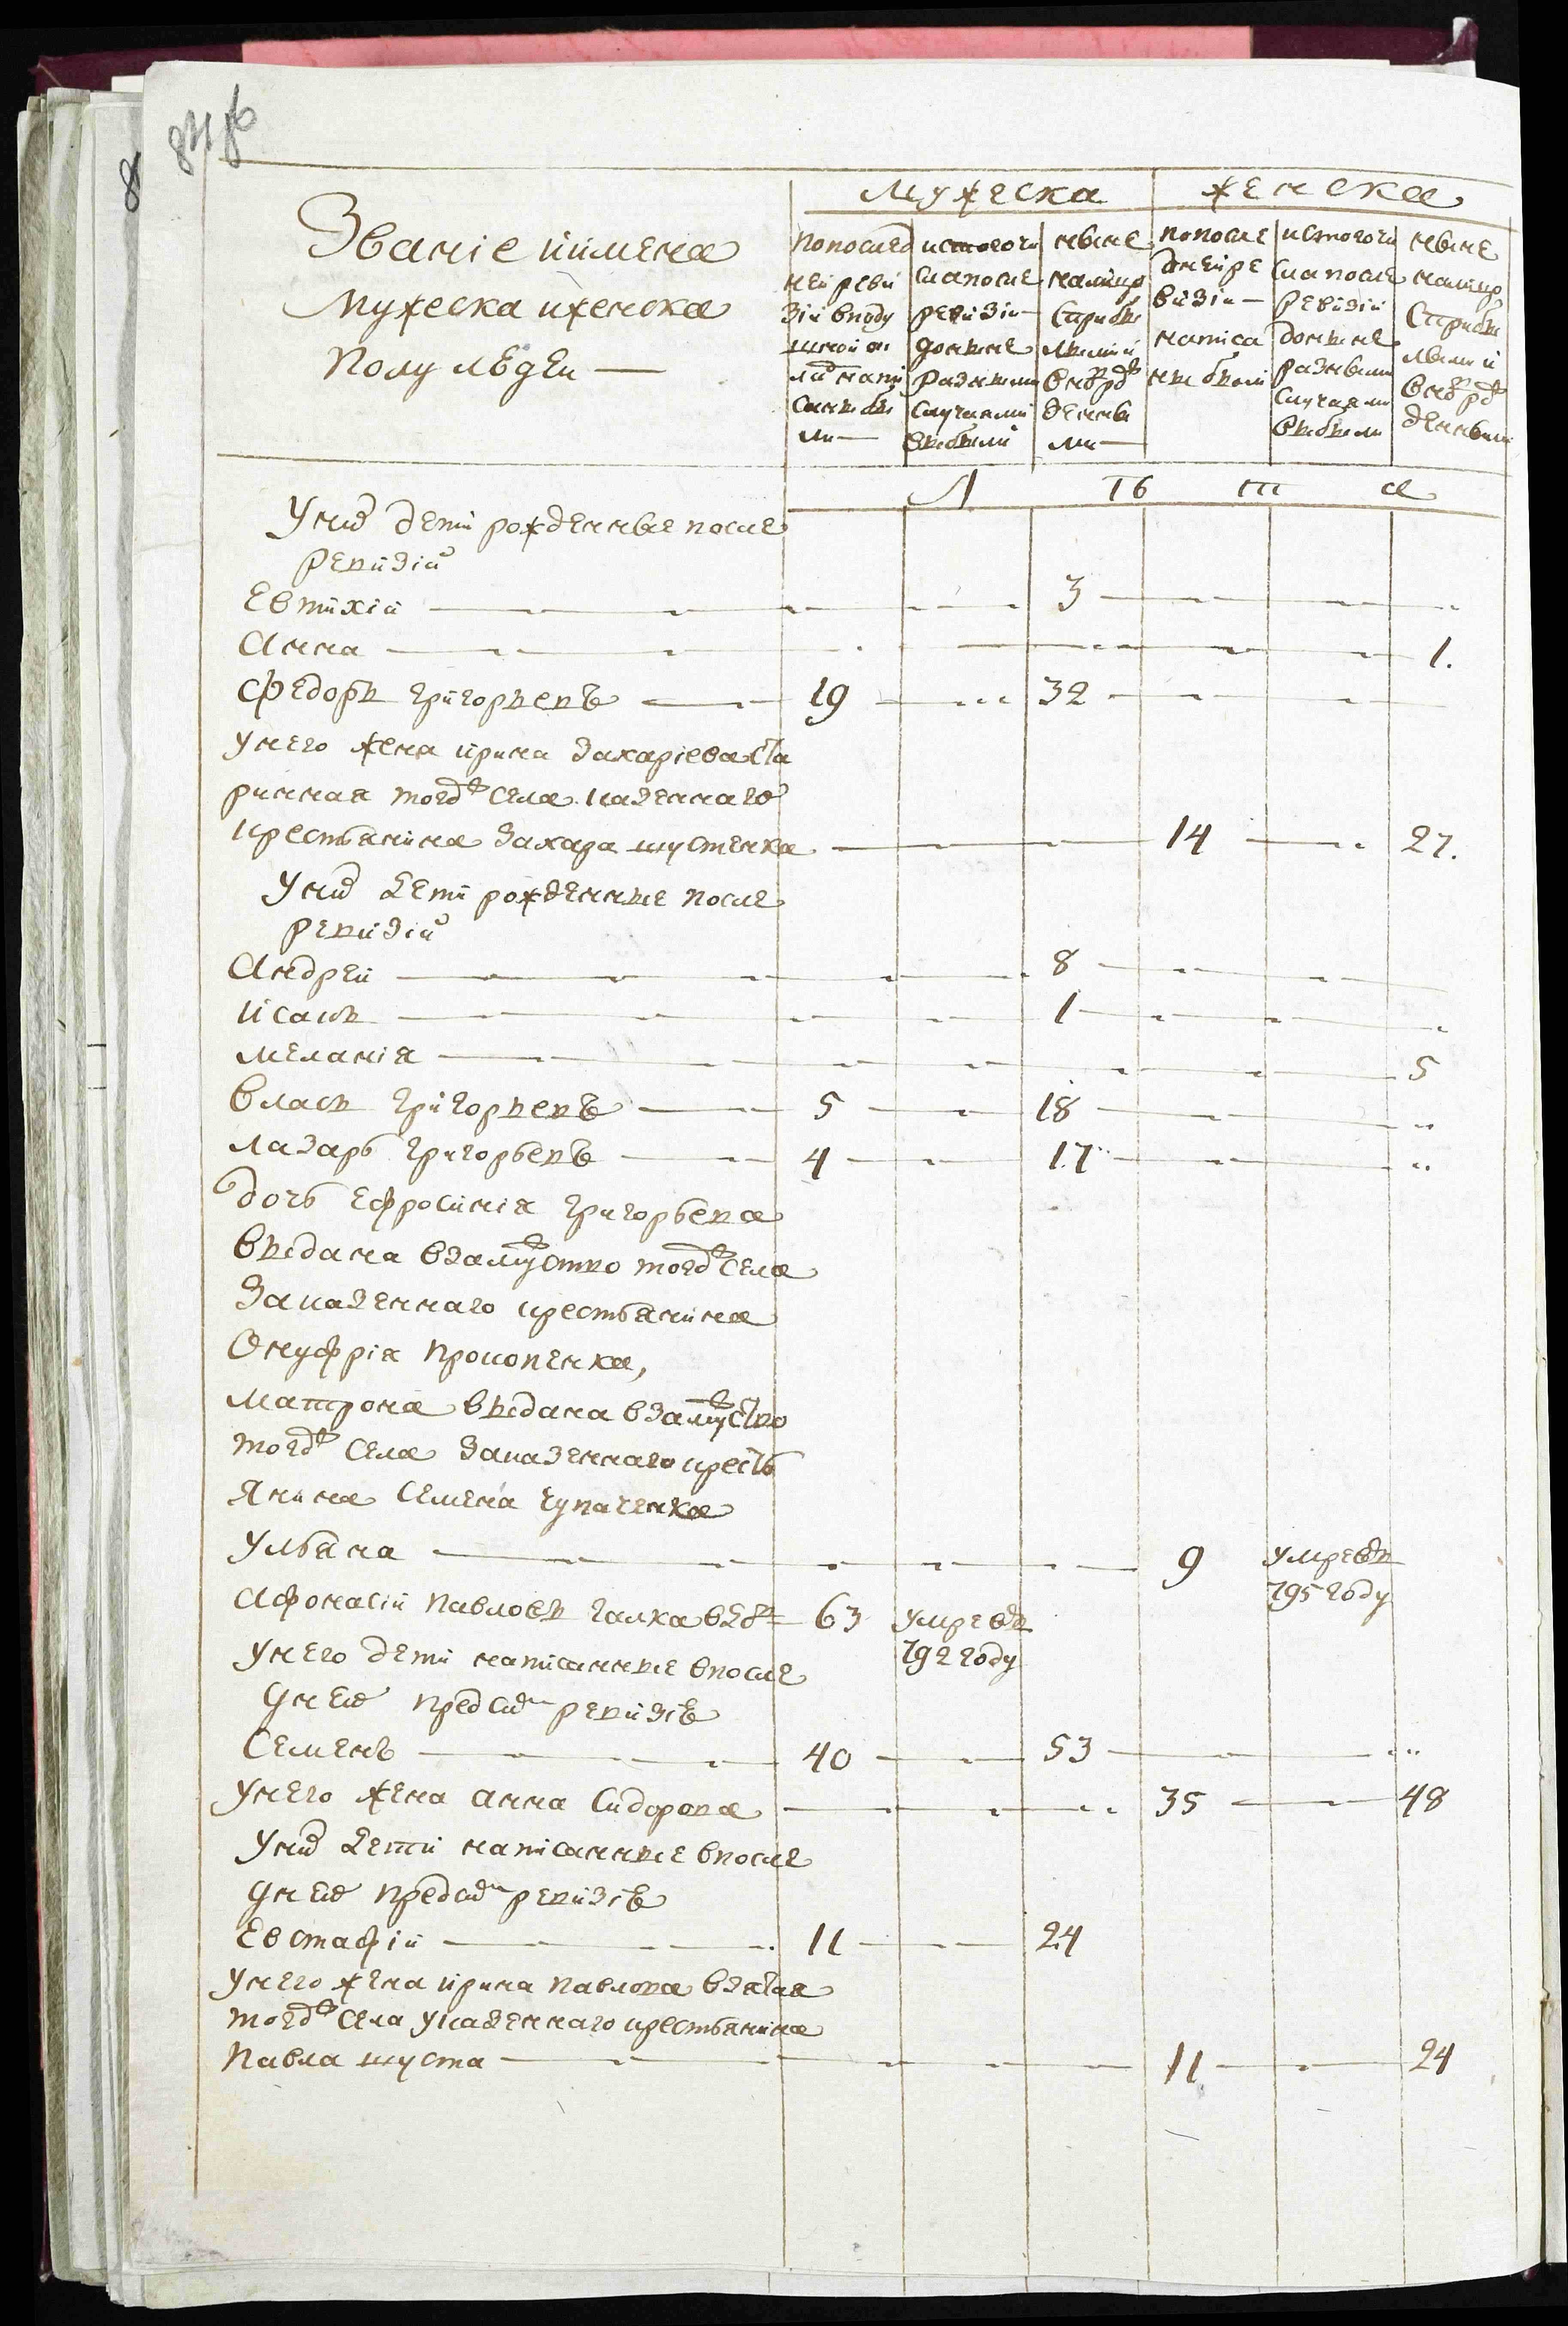 Мужеска Женска
Званіе иимена
Мужеска иженска
Полу людеи —
попослед
неи реви
зіи вподу
шной ок
ладъ напи
санныхбы
ли —
исътогочи
сла после
ревизіи —
доныне
разными
случаями
выбыли
ныне
налицо
сприбы
лыми и
вновь рож
денны
ми —
попосле
днеи ре
визіи —
написа
ны были
истогочи
сла после
ревизіи
доныне
разными
случаями
выбыли
ныне
налицо
сприбы
лыми и
вновь рож
денными
Л ѣ т а
Унихъ дети рожденные после
ревизіи
Евтихіи 3
Анна 1.
Федоръ григорьевъ 19 32
Унего жена ирина Захаріева ста
ринная тогожъ села казеннаго
крестьянина Захара шустенка 14 27.
Унихъ дети рожденные после
ревизіи
Андреи 8
Исакъ 1
Меланія 5
Власъ григорьевъ 5 18
Лазарь григорьевъ 4 17
дочь Ефросинія григорьева
выдана взамужство тогожъ села
Заказеннаго крестьянина
Онуфрія прокопенка,
Матрона выдана взамужство
тогожъ села Заказеннаго кресть
янина Семена
Ульяна 9 умре въ
795 году
Афонасіи павловъ галка 63 умре въ
792 году
Унего дети написанные впосле
днеи предъ симъ ревизіе
Семенъ 40 53
Унего жена анна Сидорова 35 48
Унихъ дети написанные впосле
днеи предъ симъ ревизіе
Евстафіи 11 24
Унего жена ирина павлова взятая
тогожъ села указеннаго крестьянина
Павла шуста 11 24